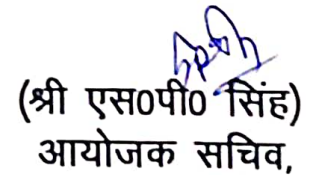 (श्री एस0पी0 सिंह)
आयोजक सचिव,